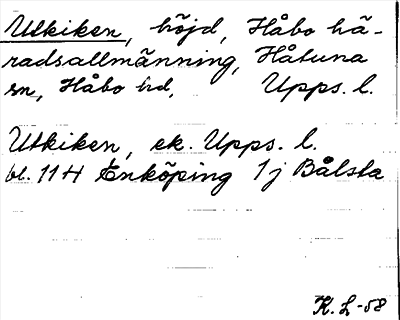 Utkiken, höjd, Håbo hä-
radsallmänning, Håtuna
sn, Håbo hd, Upps. l.
Utkiken, ek. Upps. l.
bl. 11 H Enköping 1 j Bålsta
K. L -58